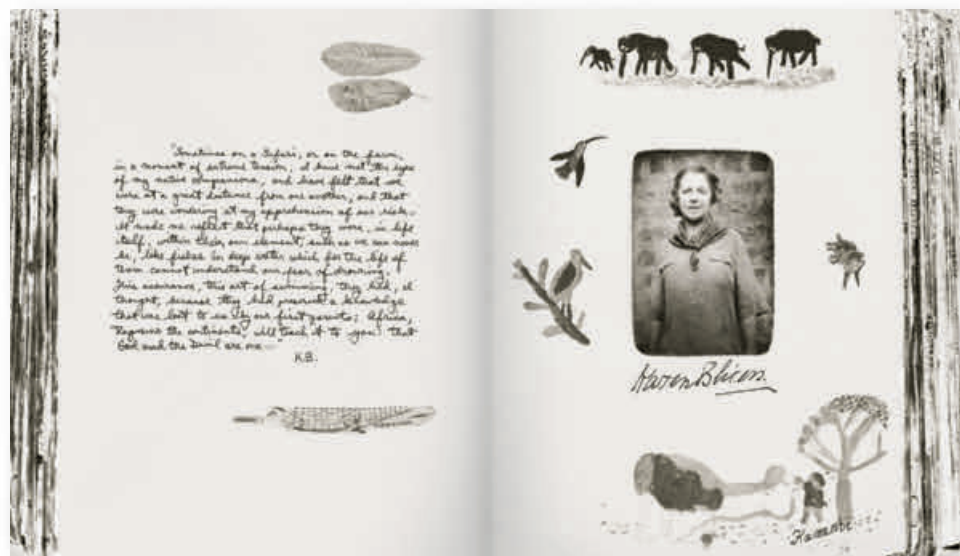 "Sometimes on a Safari, or on the farm,
in a moment of extreme tension, I have met the eyes
of my native companions, and have felt that we
were at a great distance from one another, and that
they were wondering at my apprehension of our risk.
It made me reflect that perhaps they were, in life
itself, within their own element, such as we can never
be, like fishes in deep water which for the life of
them cannot understand our fear of drowning.
This assurance, this art of swimming, they had, I
thought, because they had preserved a knowledge
that was lost to us by our first parents; Africa,
the continents, will teach it to you: that
God and the Devil are one—
K.B.
Karen Blixen.
Kamante